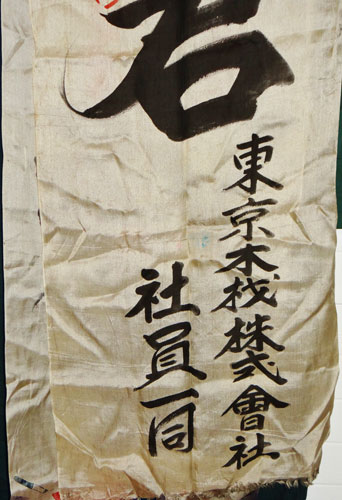 君
東京木材株式會社
社員一同